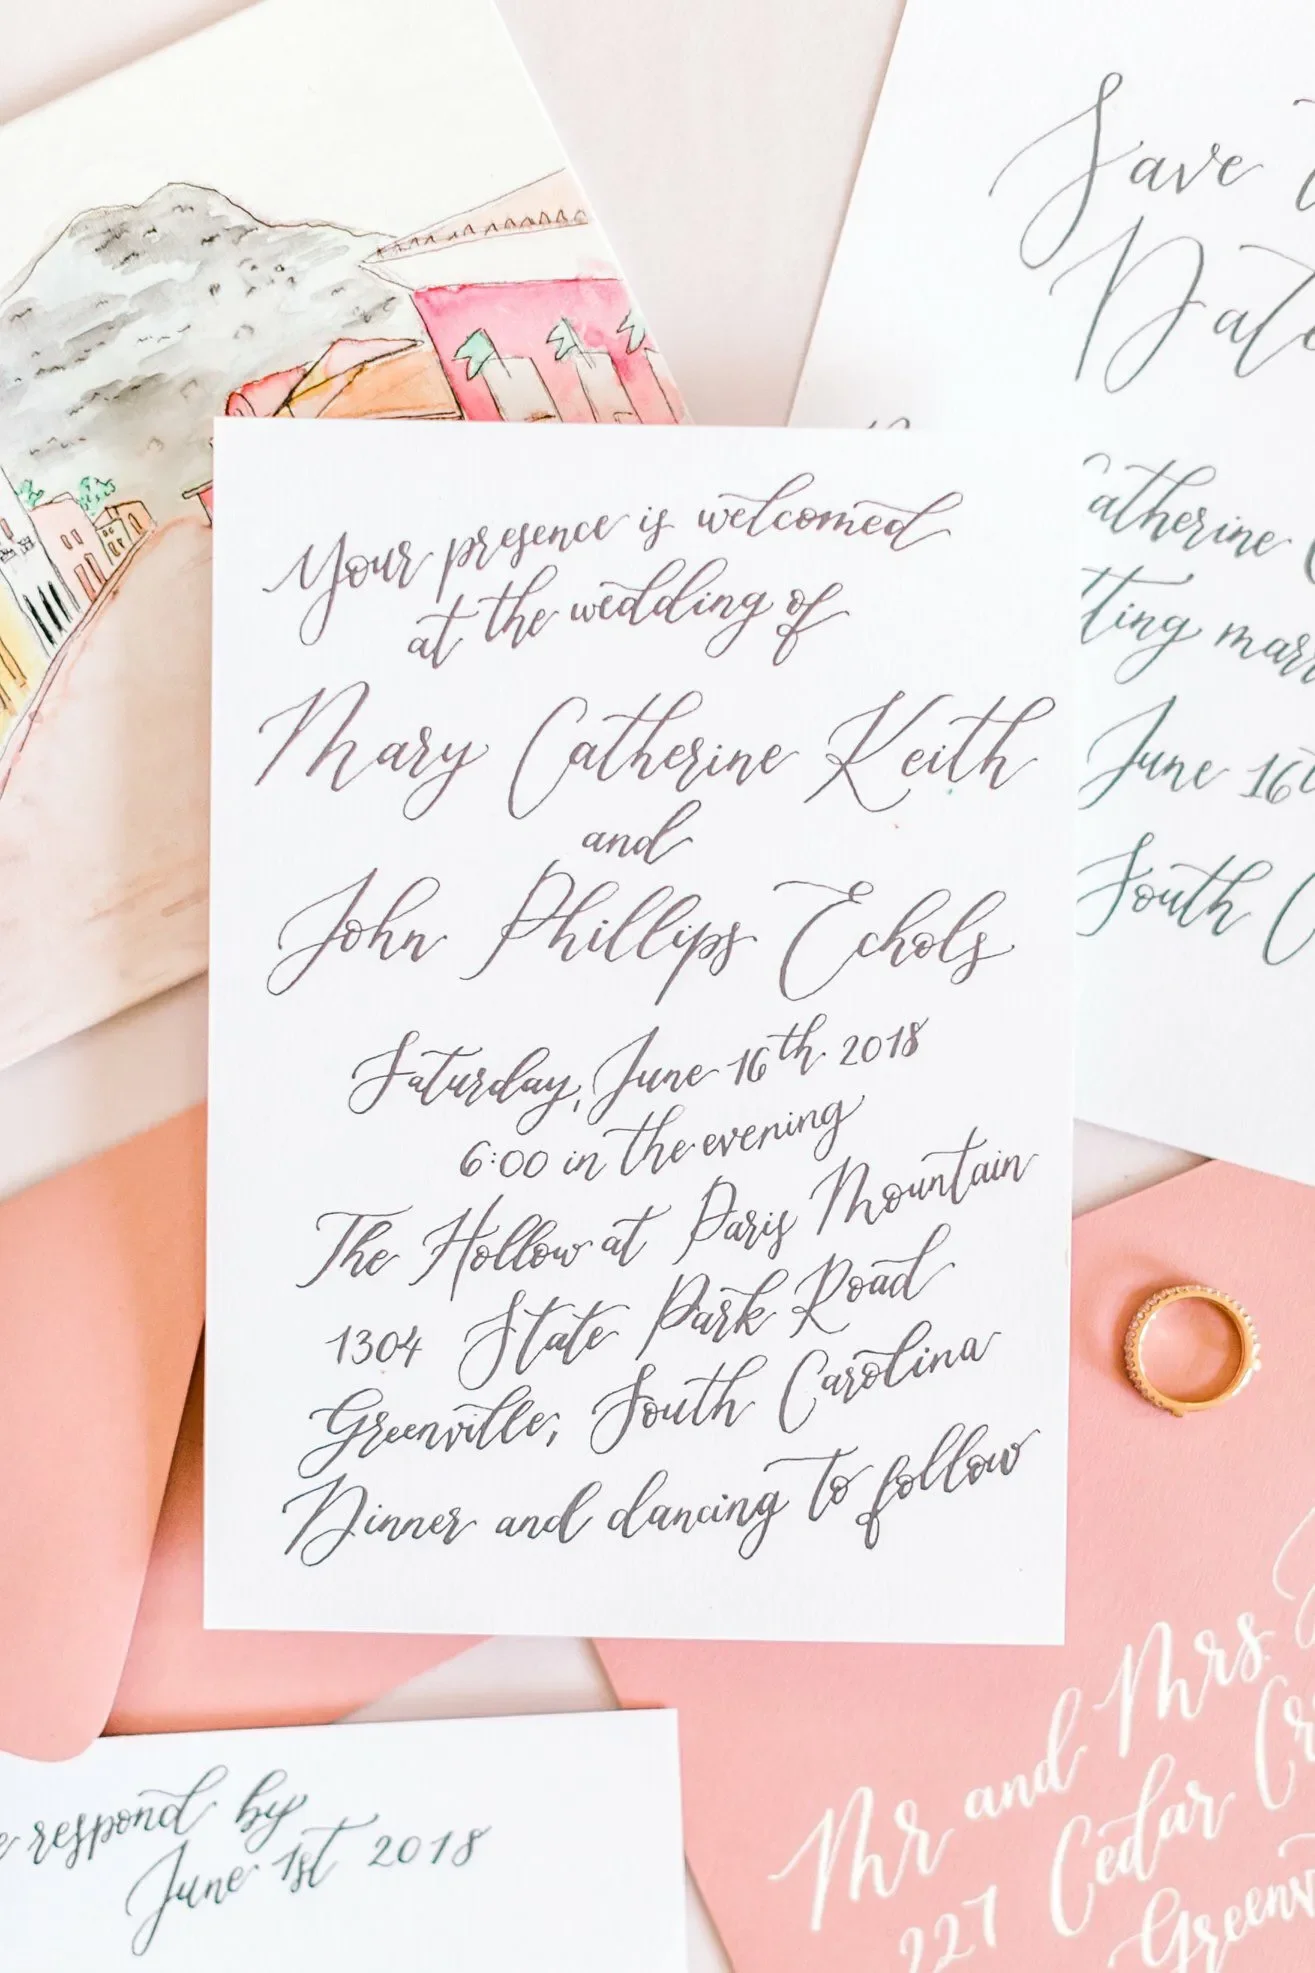 Your presence is welcomed
at the wedding of
Mary Catherine Keith
and
John Phillips Echols
Saturday, June 16th 2018
6:00 in the evening
The Hollow at Paris Mountain
1304 State Park Road
Greenville, South Carolina
Dinner and dancing to follow
Save
Date
Catherine
June 16
South
respond by
June 1st 2018
Mr and Mrs.
227 Cedar